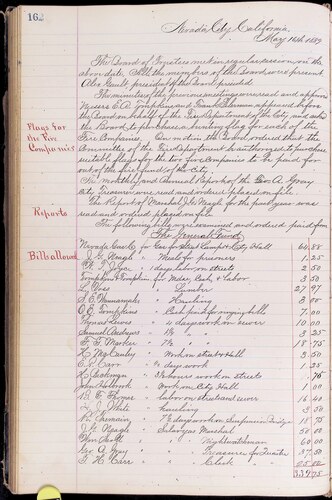 162
Nevada City, California,
May 14th, 1889
The Board of Trustees met in regular session on the
above date. All the members of the Board were present
Alex Gault president of the Board presided.
The minutes of the previous meeting were read and approved
Messrs E. A. Tompkins and Frank appeared before
the Board on behalf of the Fire Departments of the City and asked
Flags for
the Fire
Companies
the Board to purchase bunting flags for each of the
Fire Companies. On motion the Board ordered that the
Committee of the Fire Department be authorized to purchase
suitable flags for the two fire Companies to be paid for
out of the fire funds of the City
The Monthly and Annual Report of the Geo. A. Gray
City Treasurer was read and ordered placed on file.
Reports
The Report of Marshal J. G. Neagle for the past year was
read and ordered placed on file.
Bills allowed
The following bills were examined and ordered paid from
The General Fund.
Nevada Gas Co for Gas for Street Lamps & City Hall 64.88
J. G. Neagle " Meals for prisoners 1.25
" days labor on streets 2.50
Tompkins & Tompkins for & labor 3.50
L. " Lumber 27.97
" Hauling 3.00
E. E. Tompkins " Cash paid for ringing bells 7.00
" 4 days work on sewer 10.00
Samuel Andrews " 1½ " 3.25
F. T. Marker " 7½ " 18.75
McCauley " Work on street & Hall 3.50
E. P. Carr " ½ days work 1.25
" hours work on streets .75
John Holbrook " Work on City Hall 1.00
" labor on street and sewer 16.40
White " hauling 3.50
" 7½ days work on Suspension Bridge 18.75
J. G. Neagle " Salary as Marshal 50.00
Wm Scott " " Nightwatchman 60.00
Geo. A. Gray " " Treasurer for Quarter 37.50
T. H. Carr " " Clerk
334.75